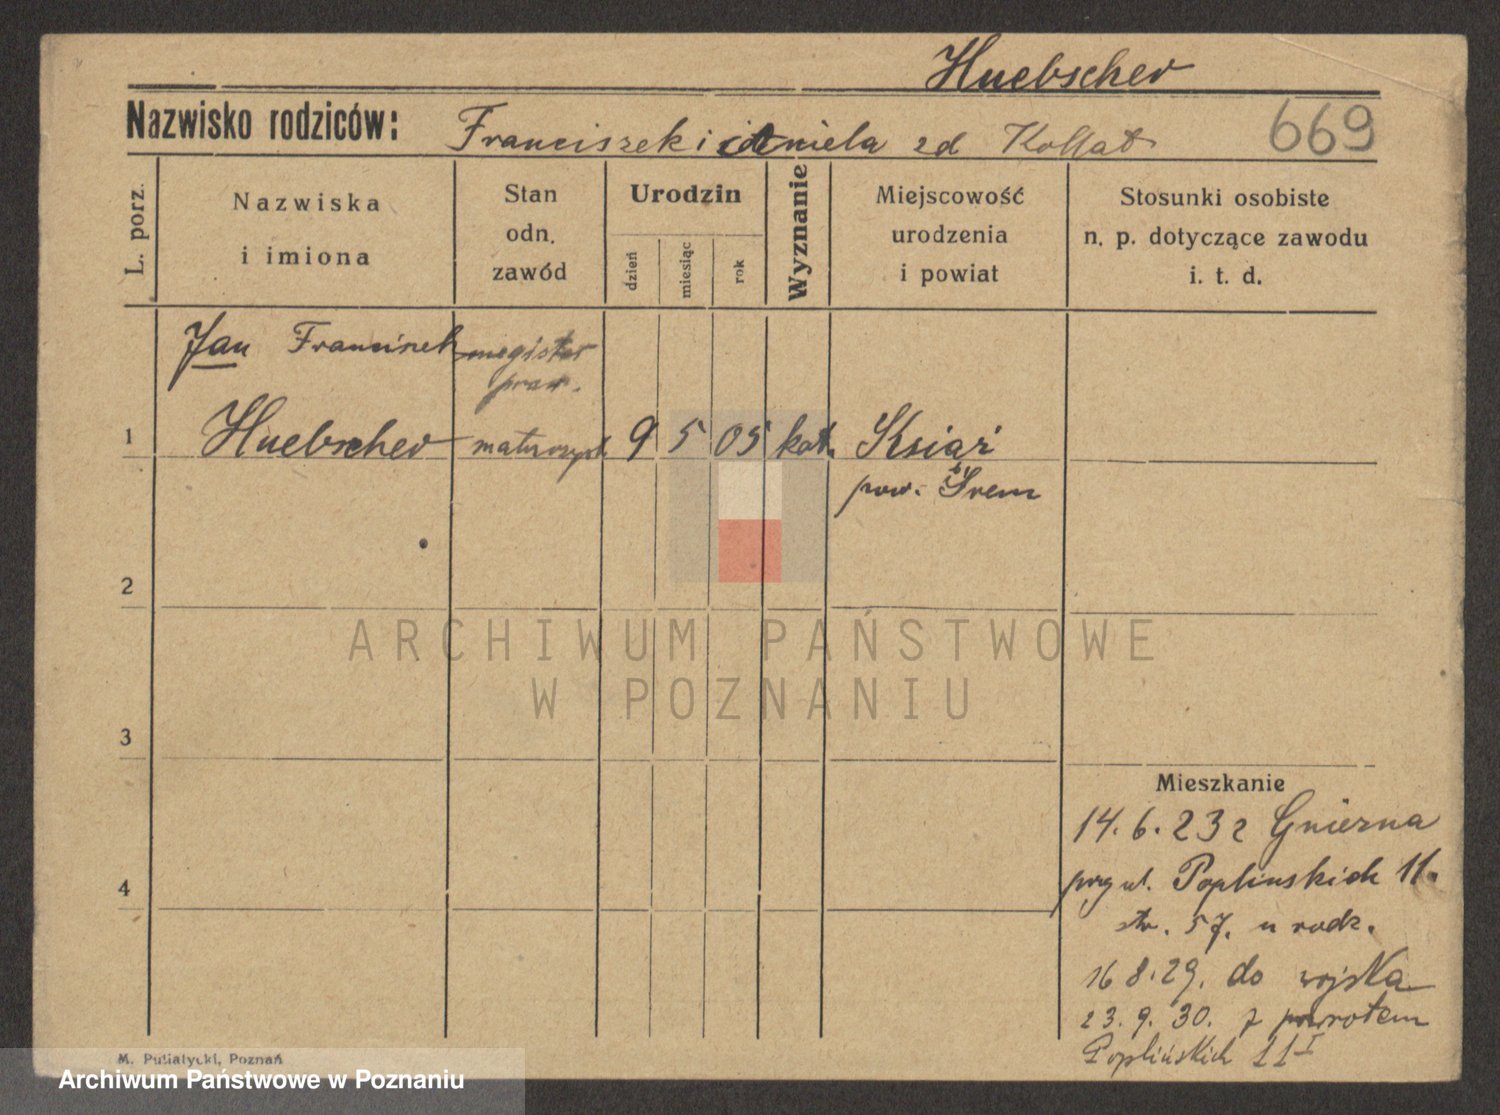 Huebscher
Nazwisko rodziców: Franciszek i Aniela zd Kollat 669
L. porz.
Nazwiska
i imiona
Stan
odn.
zawód
Urodzin
dzień
miesiąc
rok
Wyznanie
Miejscowość
urodzenia
i powiat
Stosunki osobiste
n. p. dotyczące zawodu
i. t. d.
Jan Franciszek magister
praw.
1 Huebscher maturzyst 9 5 05 kat. Książ
pow. Śrem
2
ARCHIWUM PAŃSTWOWE
W POZNANIU
3
Mieszkanie
14. 6. 23 z Gniezna
przy ul. Poplinskich 11.
4
str. 57. u rodz.
16 8. 29. do wojska
23. 9. 30. z powrotem
Poplińskich 11 I
M. Putiatycki, Poznań
Archiwum Państwowe w Poznaniu